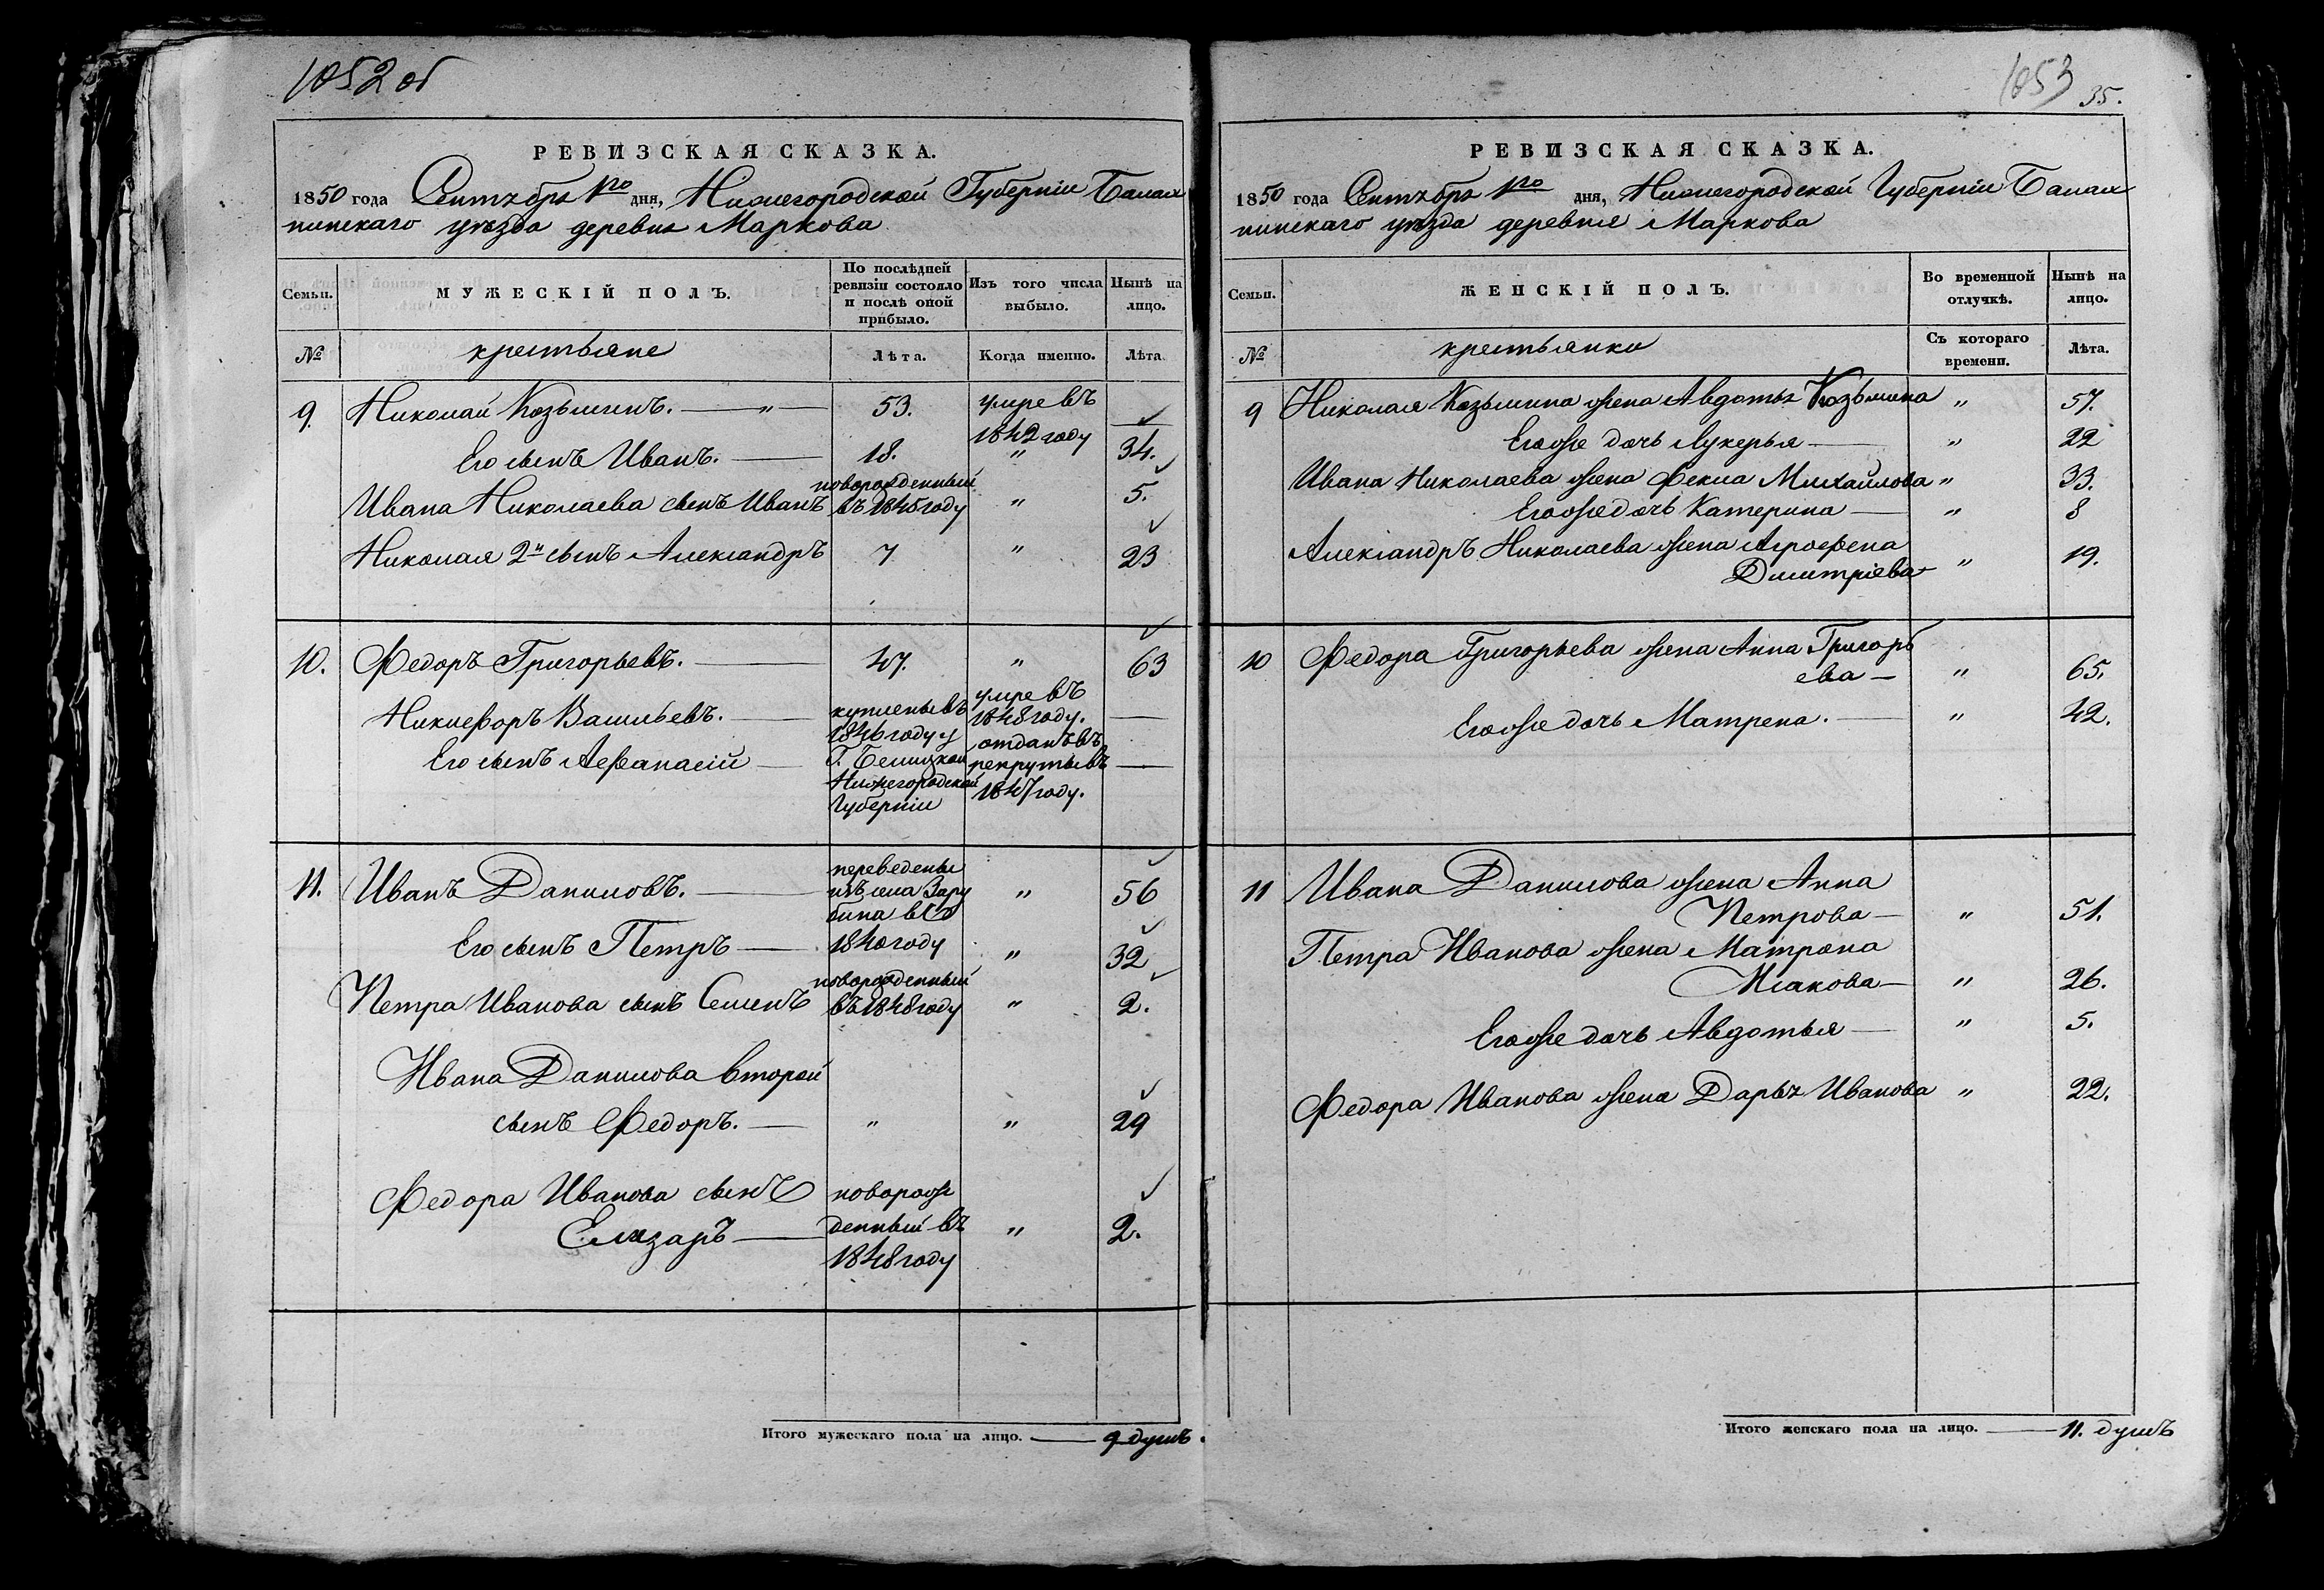 1052 об
РЕВИЗСКАЯ СКАЗКА.
1850 года Сентября 1го дня, Нижегородской Губерніи Балах
нинскаго уѣзда деревня Маркова
Семьи.
МУЖЕСКІЙ ПОЛЪ.
По послѣдней
ревизіи состояло
и послѣ оной
прибыло.
Изъ того числа
выбыло.
Нынѣ на
лицо.
№
крестьяне
Лѣта.
Когда именно.
Лѣта
9. Николай Козьминъ. — " — 53. умре въ
1842 году —
Его сынъ Иванъ. — 18. " 34.
Ивана Николаева сынъ Иванъ новорожденный
въ 1845 году " 5.
Николая 2й сынъ Александръ 7 " 23
10. Федоръ Григорьевъ. — 47. " 63
Никифоръ Васильевъ. — купленые въ
1846 году у
умре въ
1848 году. —
Его сынъ Афанасій —
Нижегородской
Губерніи
отданъ въ
рекруты въ
1847 году. —
11. Иванъ Даниловъ. — переведены
изъ села Зару
бина въ
1840 году
" 56
Его сынъ Петръ — " 32
Петра Иванова сынъ Семенъ новорожденный
въ 1848 году " 2.
Ивана Данилова второй
сынъ Федоръ. — " " 29
Федора Иванова сынъ новорож
Елизаръ — денный въ " 2.
1848 году
Итого мужескаго пола на лицо. — 9 душъ.
1053 35.
РЕВИЗСКАЯ СКАЗКА.
1850 года Сентября 1го дня, Нижегородской Губерніи Балах
нинскаго уѣзда деревня Маркова
Семьи.
ЖЕНСКІЙ ПОЛЪ.
Во временной
отлучкѣ.
Нынѣ на
лицо.
№
крестьянки
Съ котораго
времени.
Лѣта.
9 Николая Козьмина жена Авдотья Козьмина " 57.
Его же дочь Лукерья — " 22
Ивана Николаева жена Фекла Михайлова " 33.
Его же дочь Катерина — " 8
Александръ Николаева жена Агрофена
Дмитріева — " 19.
10 Федора Григорьева жена Анна Григорь
ева — " 65.
Его же дочь Матрена. — " 42.
11 Ивана Данилова жена Анна
Петрова — " 51.
Петра Иванова жена Матрона
Исакова — " 26.
Его же дочь Авдотья — " 5.
Федора Иванова жена Дарья Иванова " 22.
Итого женскаго пола на лицо. — 11. душъ